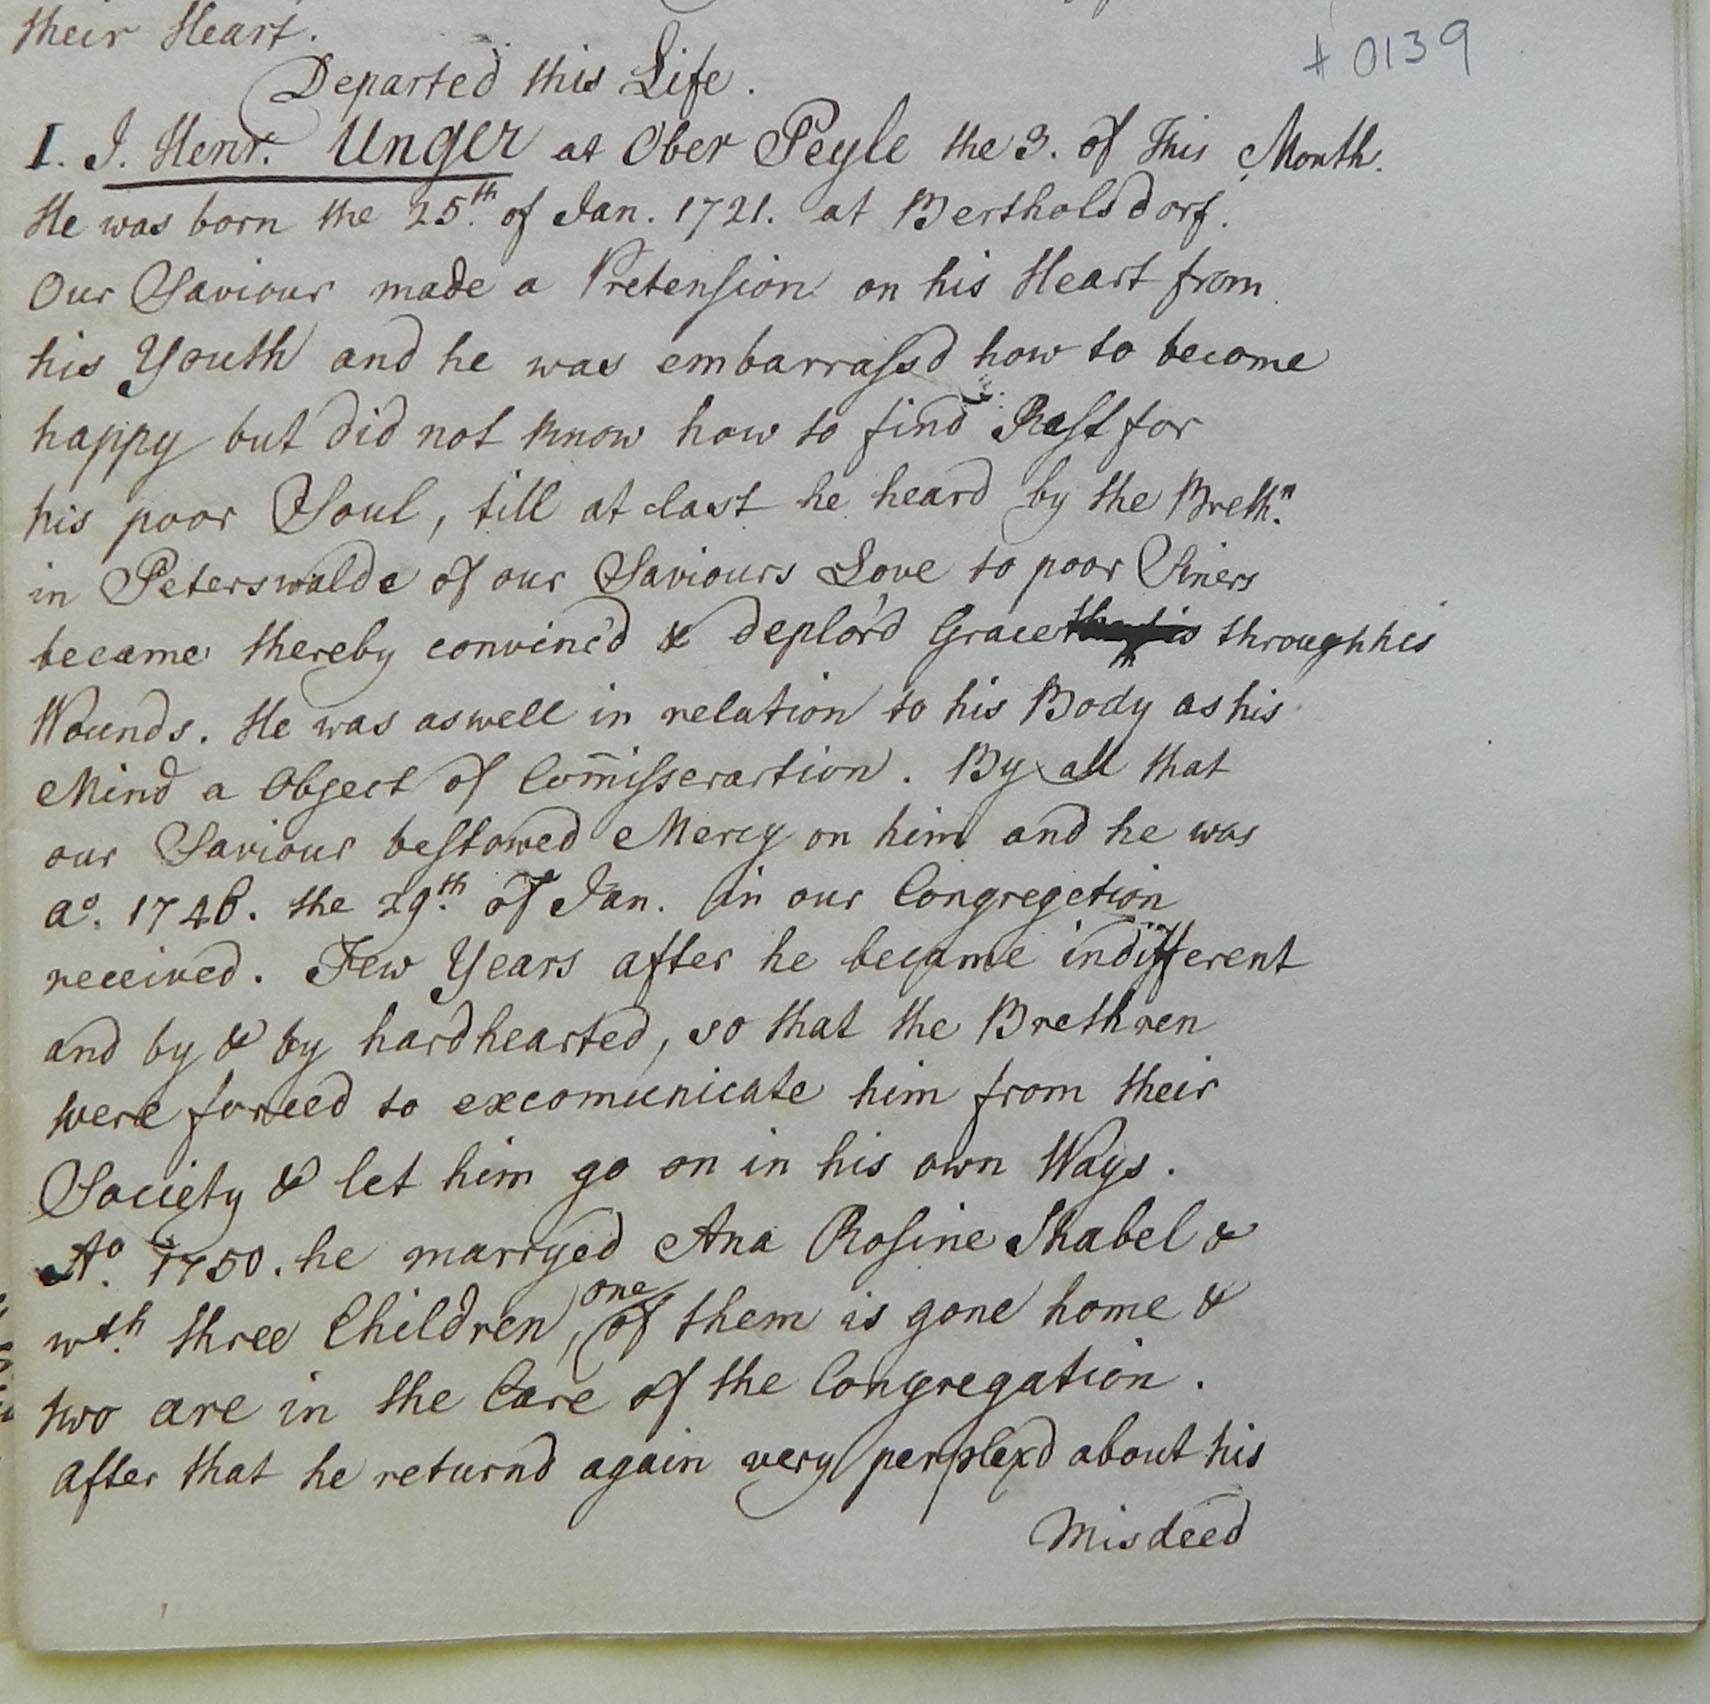 their Heart.
# 0139
Departed this Life.
I. J. Henr. Unger at Ober Peyle the 3. of This Month.
He was born the 25th. of Jan. 1721. at Bertholsdorf.
Our Saviour made a Pretension on his Heart from
his Youth and he was embarrassd how to become
happy but did not know how to find Rest for
his poor Soul, till at last he heard by the Brethn.
in Peterswalde of our Saviours Love to poor Siners
became thereby convinc'd & deplor'd Grace through his
Wounds. He was aswell in relation to his Body as his
Mind a Object of Com̅isserartion. By all that
our Saviour bestowed Mercy on him and he was
ao. 1746. the 29th. of Jan. in our Congregetion
received. Few Years after he became indifferent
and by & by hardhearted, so that the Brethren
were forced to excomunicate him from their
Society & let him go on in his own Ways.
Ao. 1750. he marryed Ana Rosine Shabel &
wth. three Children, one of them is gone home &
two are in the Care of the Congregation.
After that he returnd again very perplexd about his
Misdeed